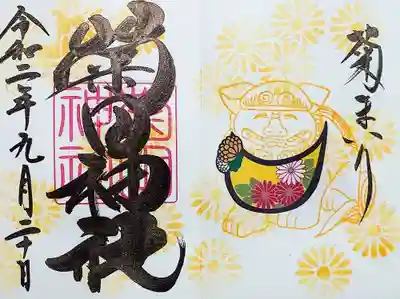 菊まつり
神社
令和二年九月二十日